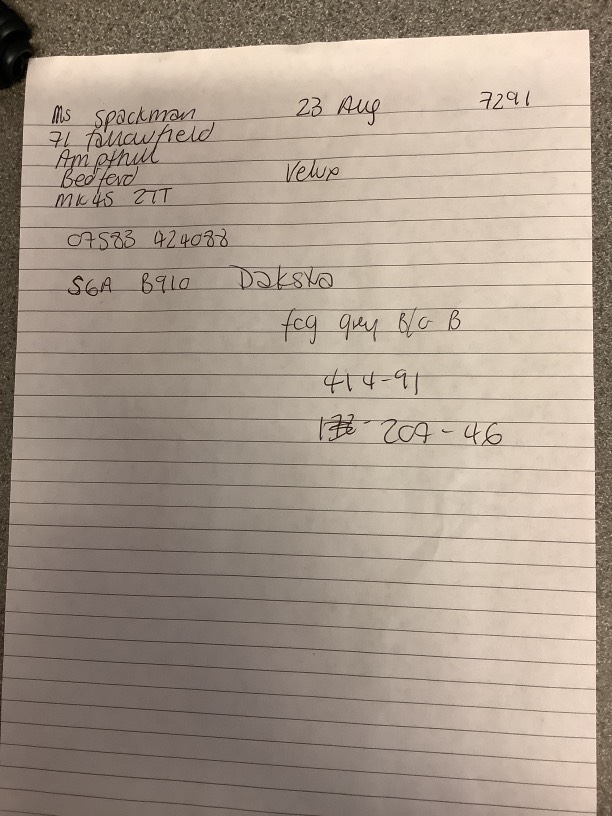 Ms Spackman 23 Aug 7291
71 fallowfield
Ampthill
Bedford Velux
MK45 2TT
07583 424088
S6A B910 Daksta
fcg grey B/G B
414-91
207-46